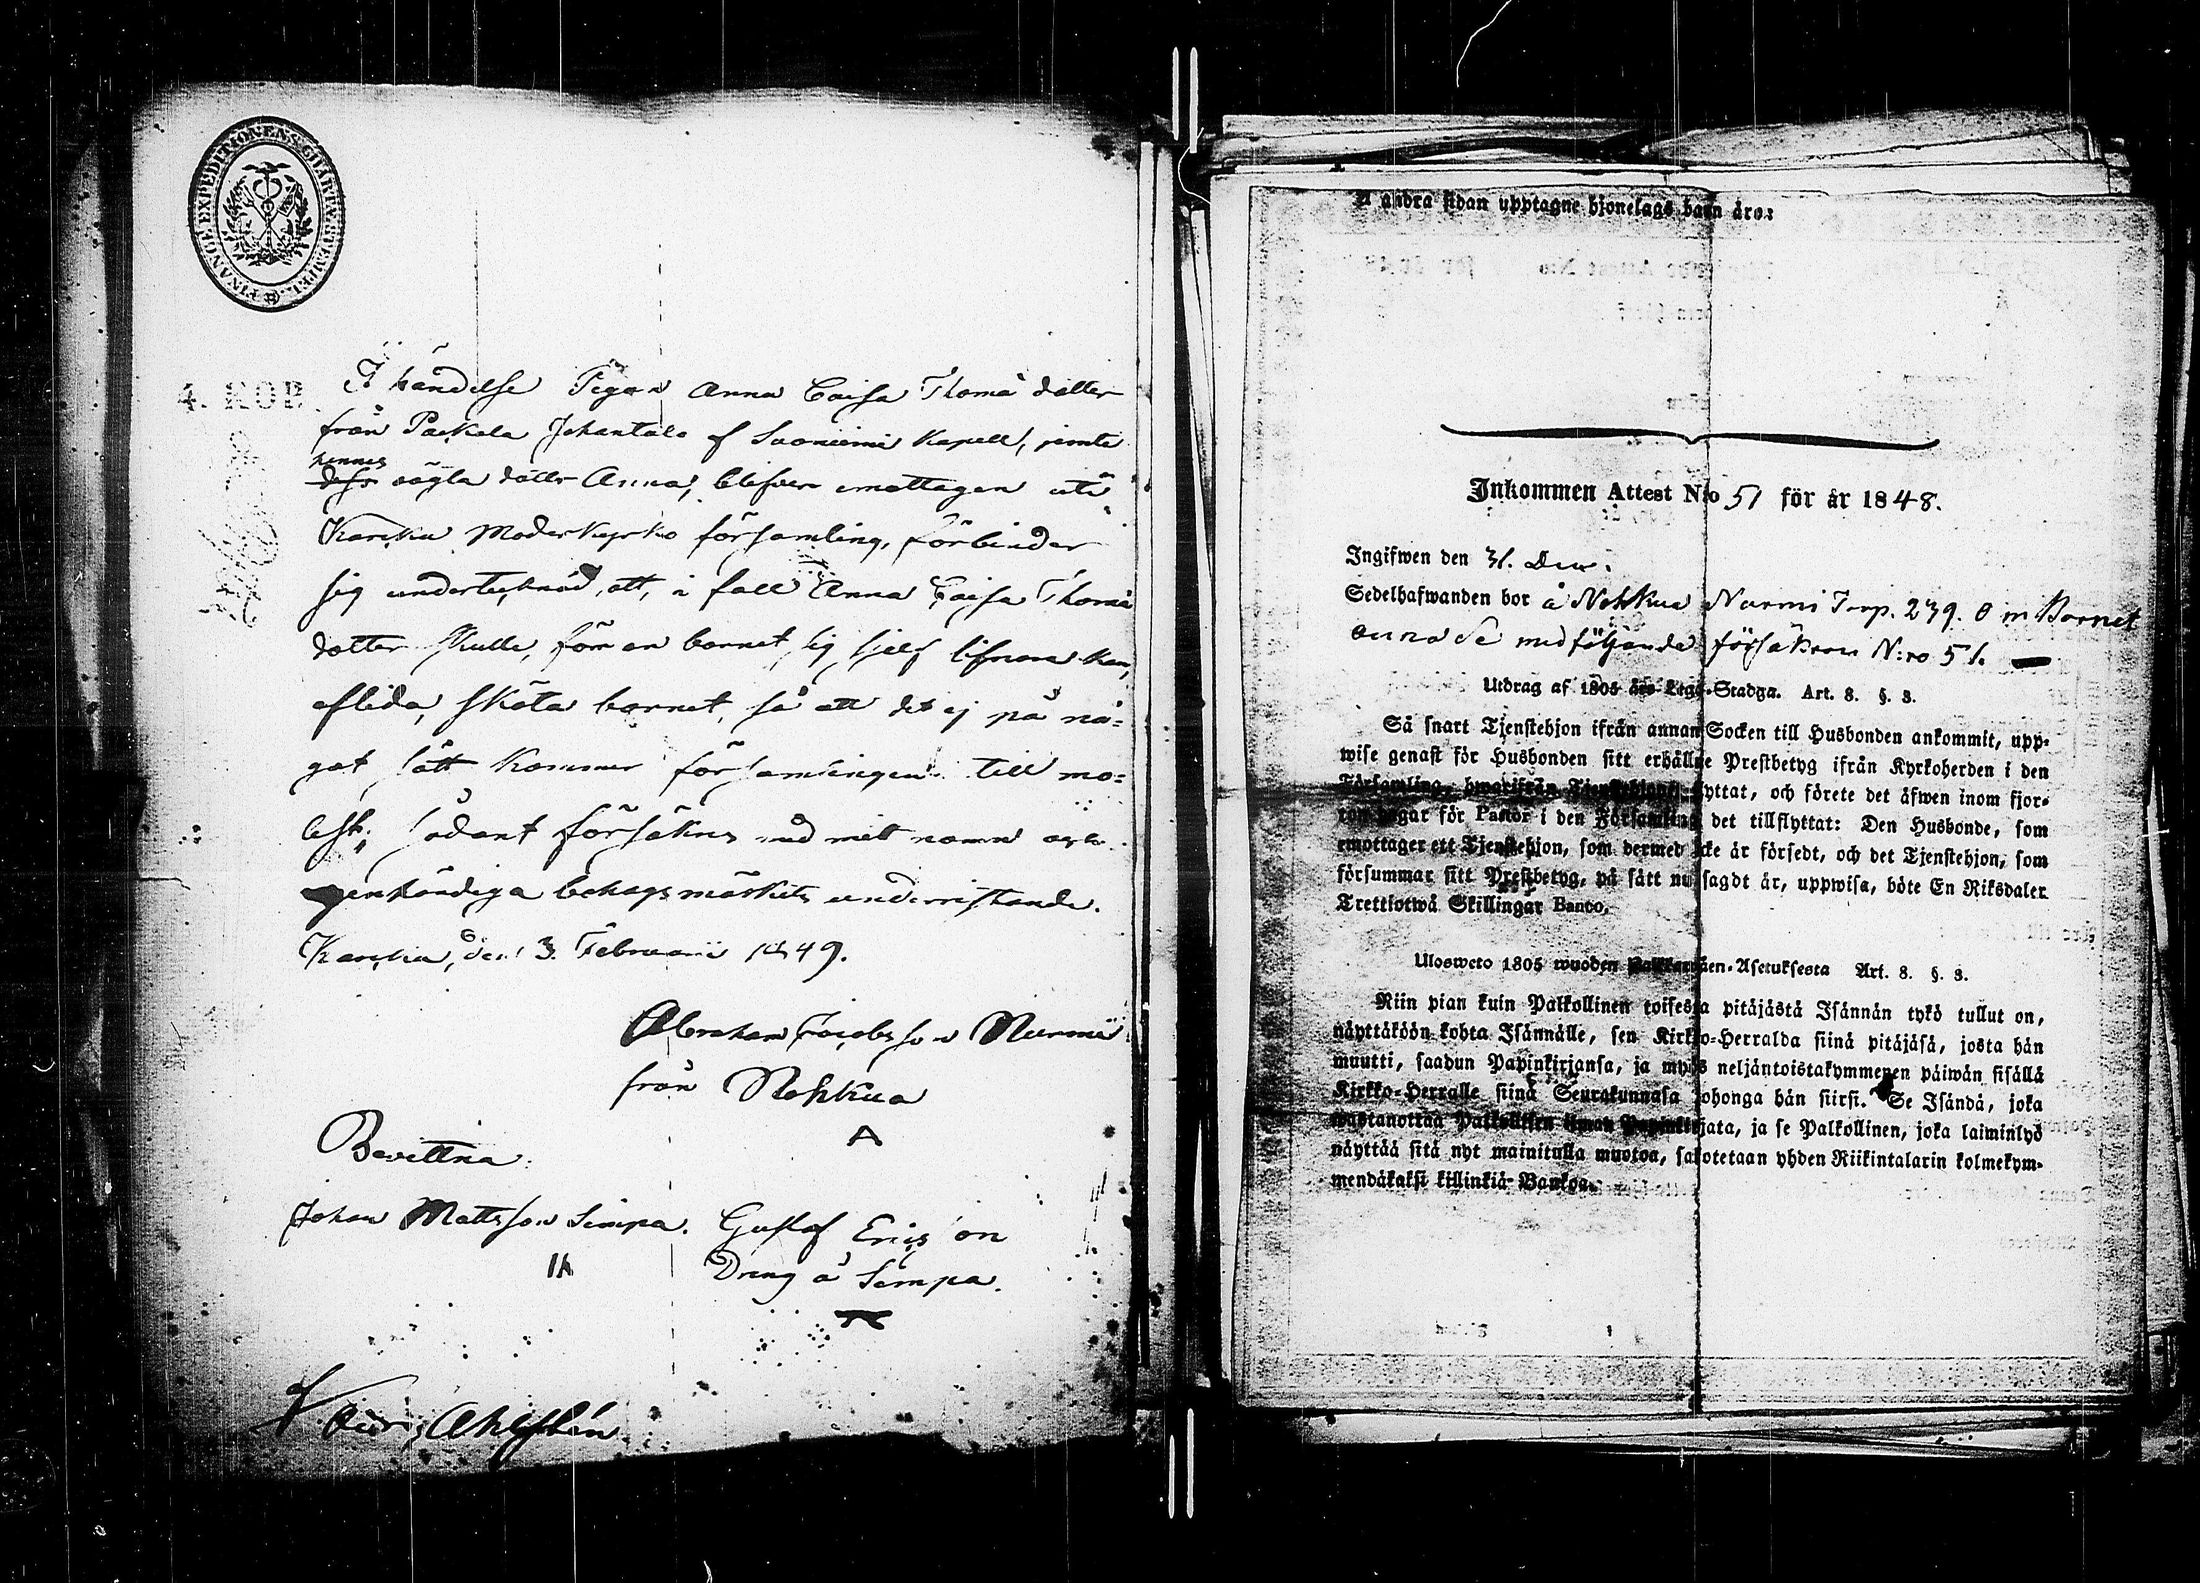 FINANCE EXPEDITIONENS CHARTÆ STEMPEL
4. KOP.
I händelse Pigan Anna Caisa Thomæ dotter
från Packala Johantalo af Suoniemi Kapell, jemte
hennes
dess oägta dotter Anna, blifver emottagen uti
Karkku Moderkyrko församling, förbinder
sig undertecknad, att, i fall Anna Caisa Thomæ
dotter skulle, förr än barnet sig sjelf lifnära kan,
aflida, sköta barnet, så att det ej på nå-
got sätt kommer församlingen till mo-
lest; sådant försäkras med mitt namn och
egenhändiga bohagsmärkets underristande.
Karkku, den 3. Februarii 1849.
Abraham Jacobsson Nurmi
från Nohkua
A
Bevittna:
Johan Mattsson Simpa. Gustaf Ericsson
Dräng å Simpa.
Ahlstén
andra sidan upptagne hjonelags barn äro:
Inkommen Attest N:o 51 för år 1848.
Ingifwen den 31. Dec.
Sedelhafwanden bor å Nohkua Nurmi Torp. 239. Om Barnet
Anna Se medföljande försäkran N:ro 51.
Utdrag af 1805 års Lego-Stadga. Art. 8. §. 3.
Så snart Tjenstehjon ifrån annan Socken till Husbonden ankommit, upp-
wise genast för Husbonden sitt erhållne Prestbetyg ifrån Kyrkoherden i den
Församling, hwarifrån Tjenstehjonet flyttat, och förete det äfwen inom fjor-
ton dagar för Pastor i den Församling det tillflyttat: Den Husbonde, som
emottager ett Tjenstehjon, som dermed icke är försedt, och det Tjenstehjon, som
försummar sitt Prestbetyg, på sätt nu sagdt är, uppwisa, böte En Riksdaler
Trettiotwå Skillingar Banco.
Ulosweto 1805 wuoden Palkkawäen-Asetuksesta Art. 8. §. 3.
Niin pian kuin Palkollinen toisesta pitäjästä Isännän tykö tullut on,
näyttäköön kohta Isännälle, sen Kirkko-Herralda siinä pitäjäsä, josta hän
muutti, saadun Papinkirjansa, ja myös neljäntoistakymmenen päiwän sisällä
Kirkko-Herralle siinä Seurakunnasa johonga hän siirsi. Se Isändä, joka
wastanottaa Palkollisen ilman Papinkirjata, ja se Palkollinen, joka laiminlyö
näyttää sitä nyt mainitulla muotoa, sakotetaan yhden Riikintalarin kolmekym-
mendäkaksi killinkiä Bankoa.